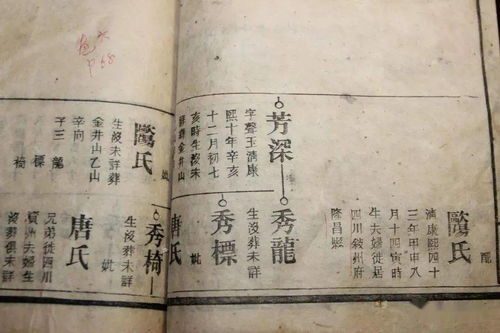 芳深
字聲玉清康
熙十年辛亥
十二月初七
亥時生沒未
詳葬金井山
妣
歐氏
生沒未詳葬
金井山乙山
辛向
子三 龍
標
椅
配
歐氏
清康熙四十
三年甲申八
月十四寅時
生夫婦徙居
四川敘州府
隆昌縣
秀龍
生沒葬未詳
秀標
妣
唐氏
秀椅
生沒葬未詳
妣
唐氏
兄弟徙四川
夫婦生
沒葬俱未詳
P68